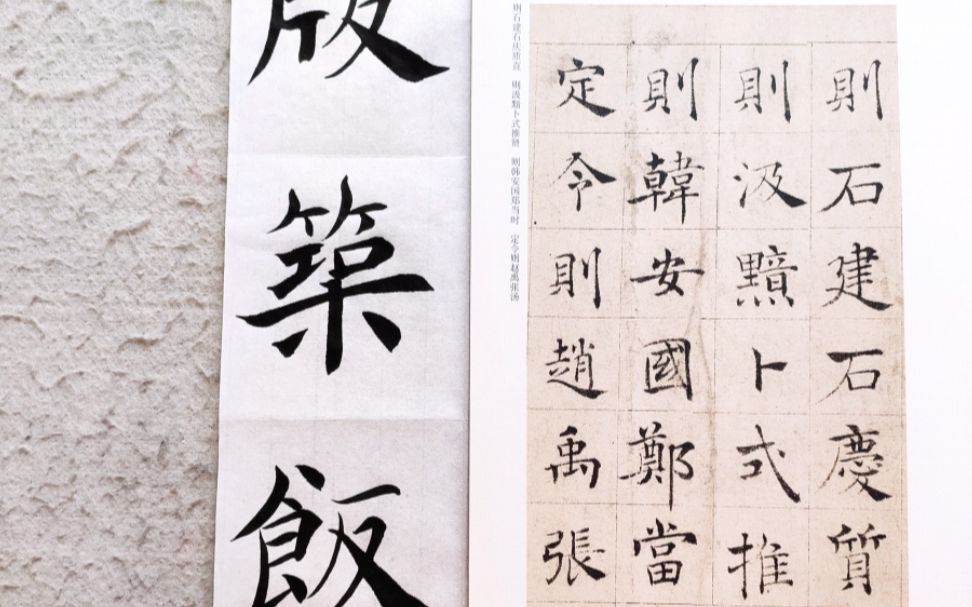 則石建石慶質
則汲黯卜式推
則韓安國鄭當
定令則趙禹張
则石建石庆质直 则汲黯卜式推贤 则韩安国郑当时 定令则赵禹张汤
版築飯